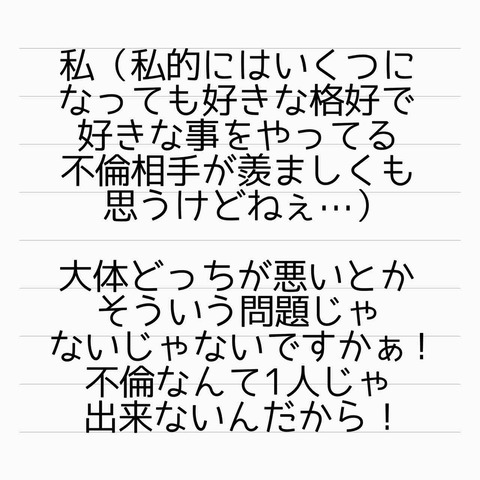 私（私的にはいくつに
なっても好きな格好で
好きな事をやってる
不倫相手が羨ましくも
思うけどねぇ…）
大体どっちが悪いとか
そういう問題じゃ
ないじゃないですかぁ！
不倫なんて1人じゃ
出来ないんだから！